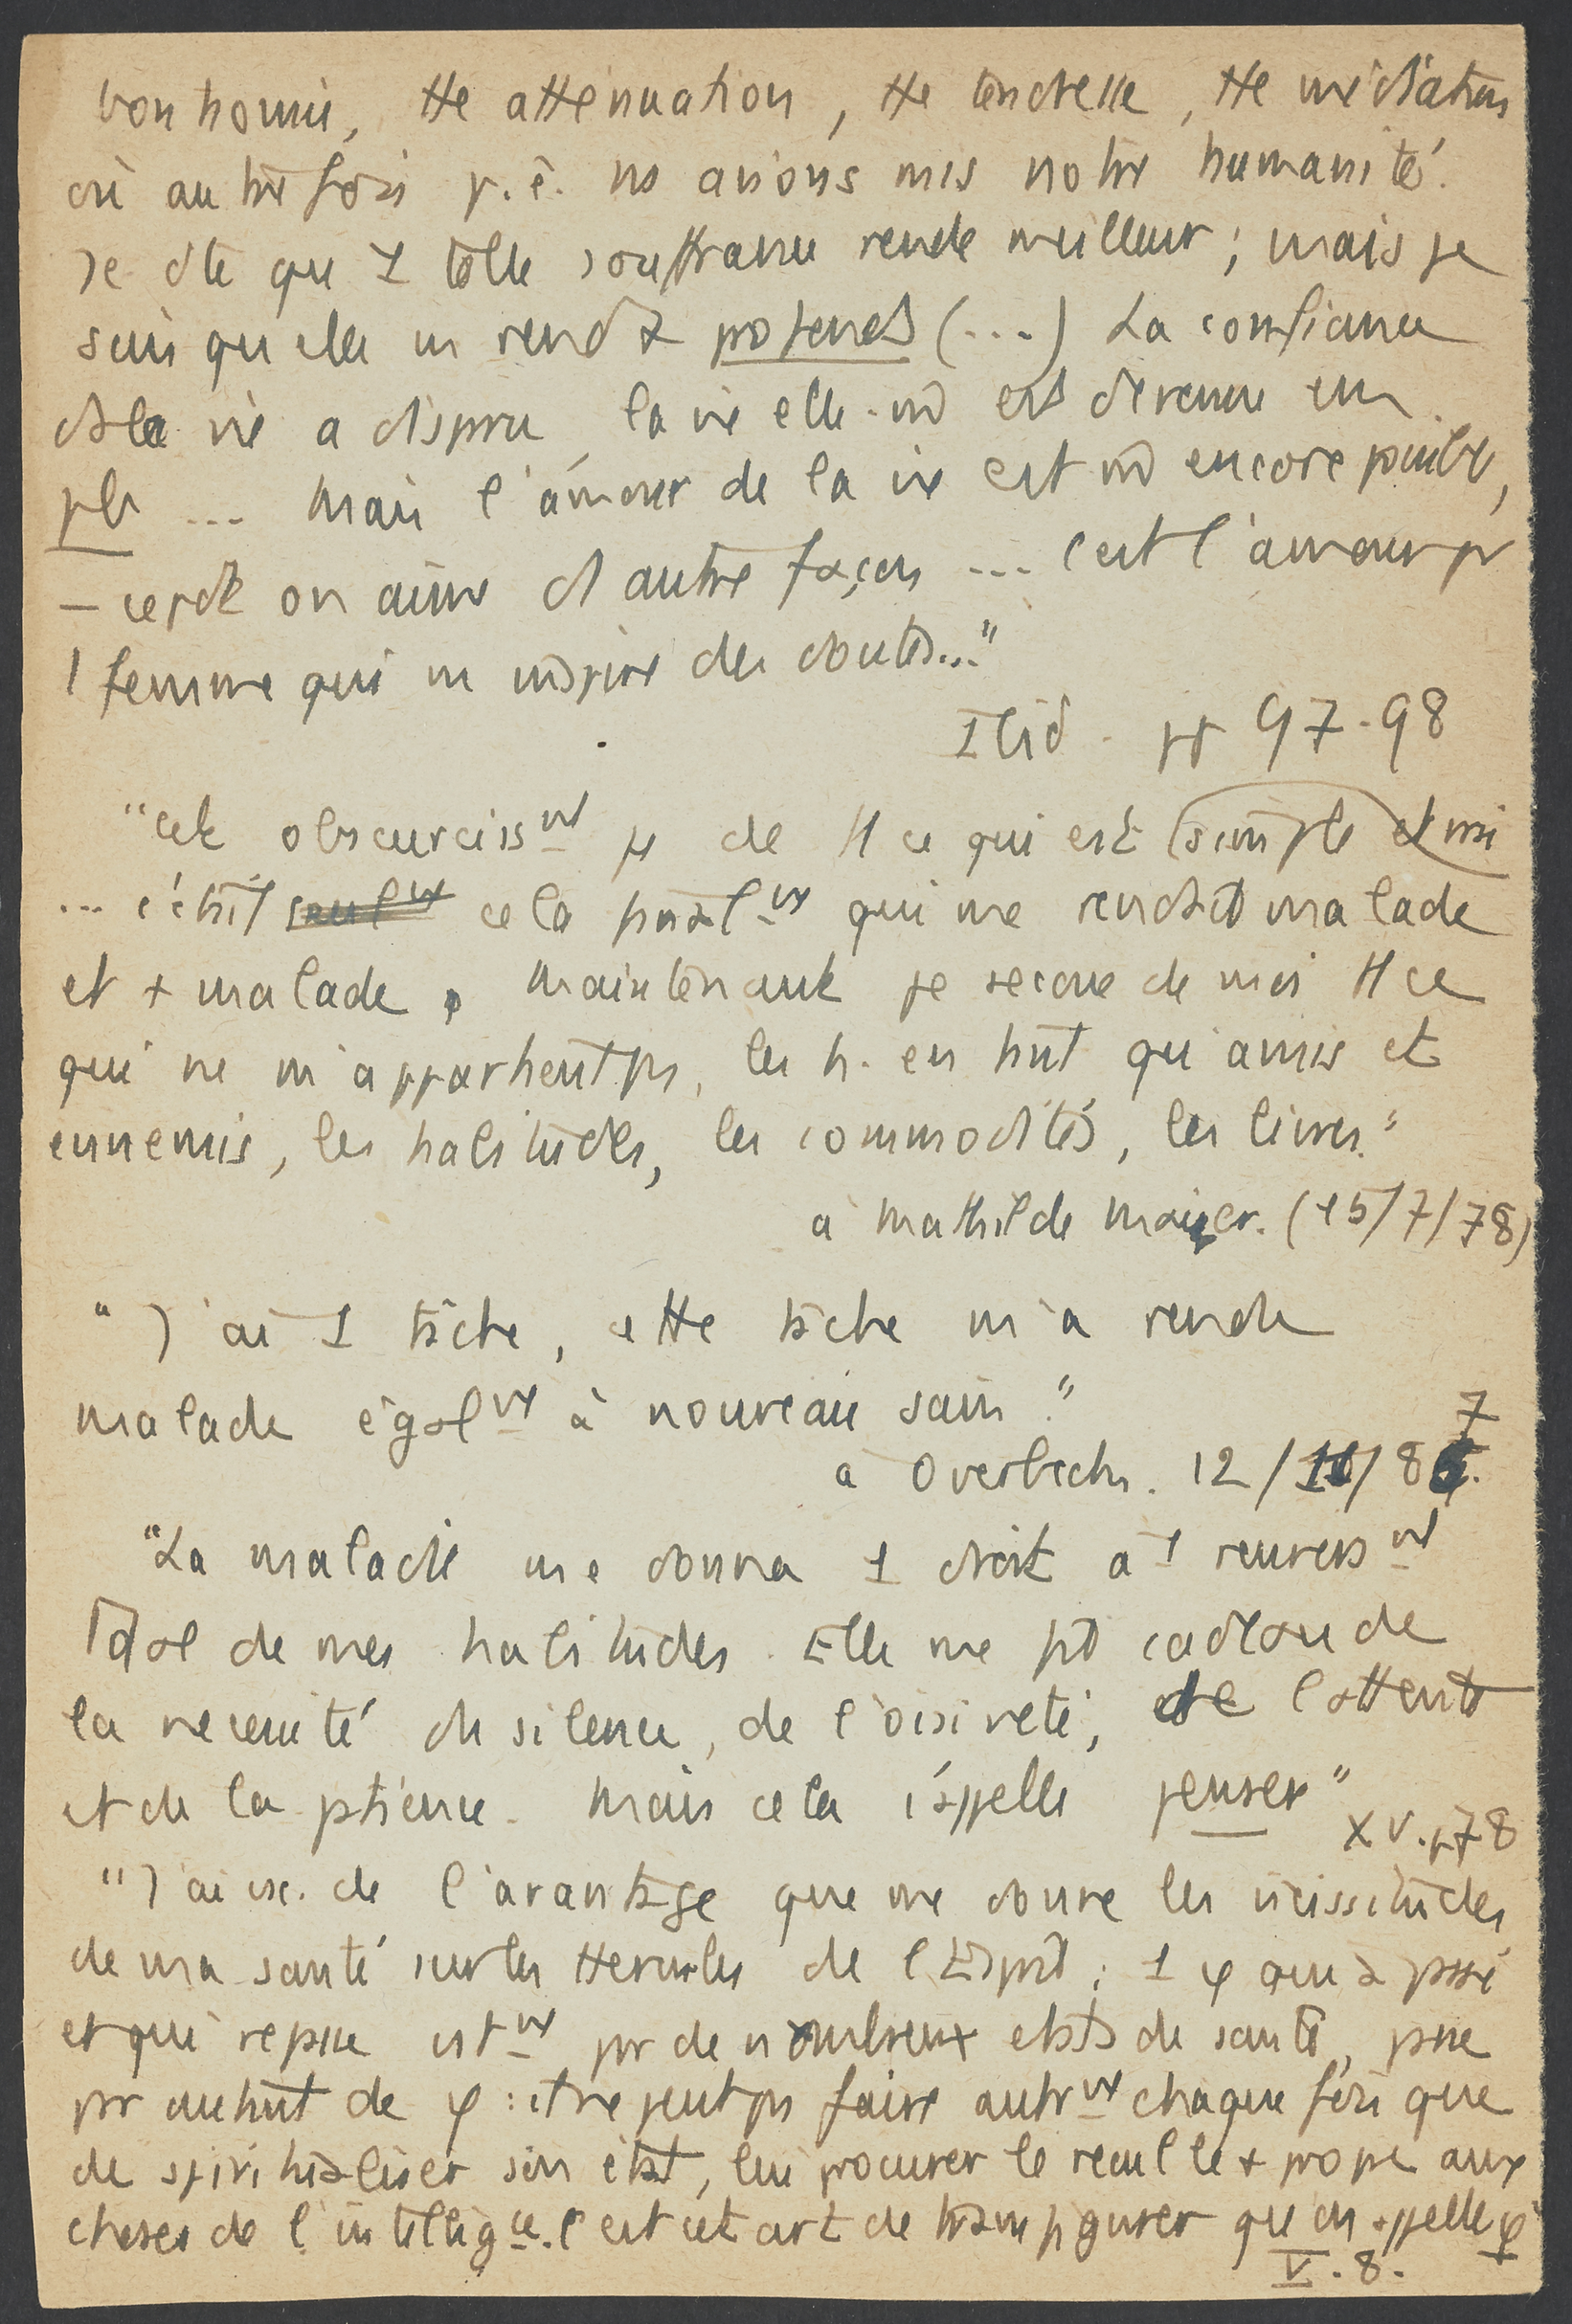 bonhomie, tte atténuation, tte tendresse, tte médiation
où autrefois p.ê. ns avions mis notre humanité.
Je dte que 1 telle souffrance rende meilleur ; mais je
sais qu'elle ns rend + profonds (...) La confiance
ds la vie a disparu, la vie elle-m̂ est devenue un
pb ... Mais l'amour de la vie est m̂ encore possible,
— cepdt on aime d'autre façon ... c'est l'amour pr
1 femme qui ns inspire des doutes..."
Ibid. pp 97-98
"cet obscurcissmt de tt ce qui est simple et vrai
... c'était seulmt cela finalmt qui me rendait malade
et + malade. Maintenant je secoue de moi tt ce
qui ne m'appartient ps, les h. en tant qu'amis et
ennemis, les habitudes, les commodités, les livres."
à Mathilde Maier. (15/7/78)
"J'ai 1 tâche, cette tâche m'a rendu
malade égalmt à nouveau sain."
à Overbeck. 12/11/87.
"La maladie me donna 1 droit à 1 renversmt
total de mes habitudes. Elle me fit cadeau de
la nécessité du silence, de l'oisiveté, de l'attente
et de la patience. Mais cela s'appelle penser"
XV. p78
"J'ai csc. de l'avantage que me donne les vicissitudes
de ma santé sur les Hercules de l'Esprit ; 1 φ qui a passé
et qui repasse cstmt pr de nombreux états de santé, passe
pr autant de φ : il ne peut ps faire autrmt chaque fois que
de spiritualiser son état, lui procurer le recul le + propre aux
choses de l'intelligce. C'est cet art de transfigurer qu'on appelle φ
V. 8.